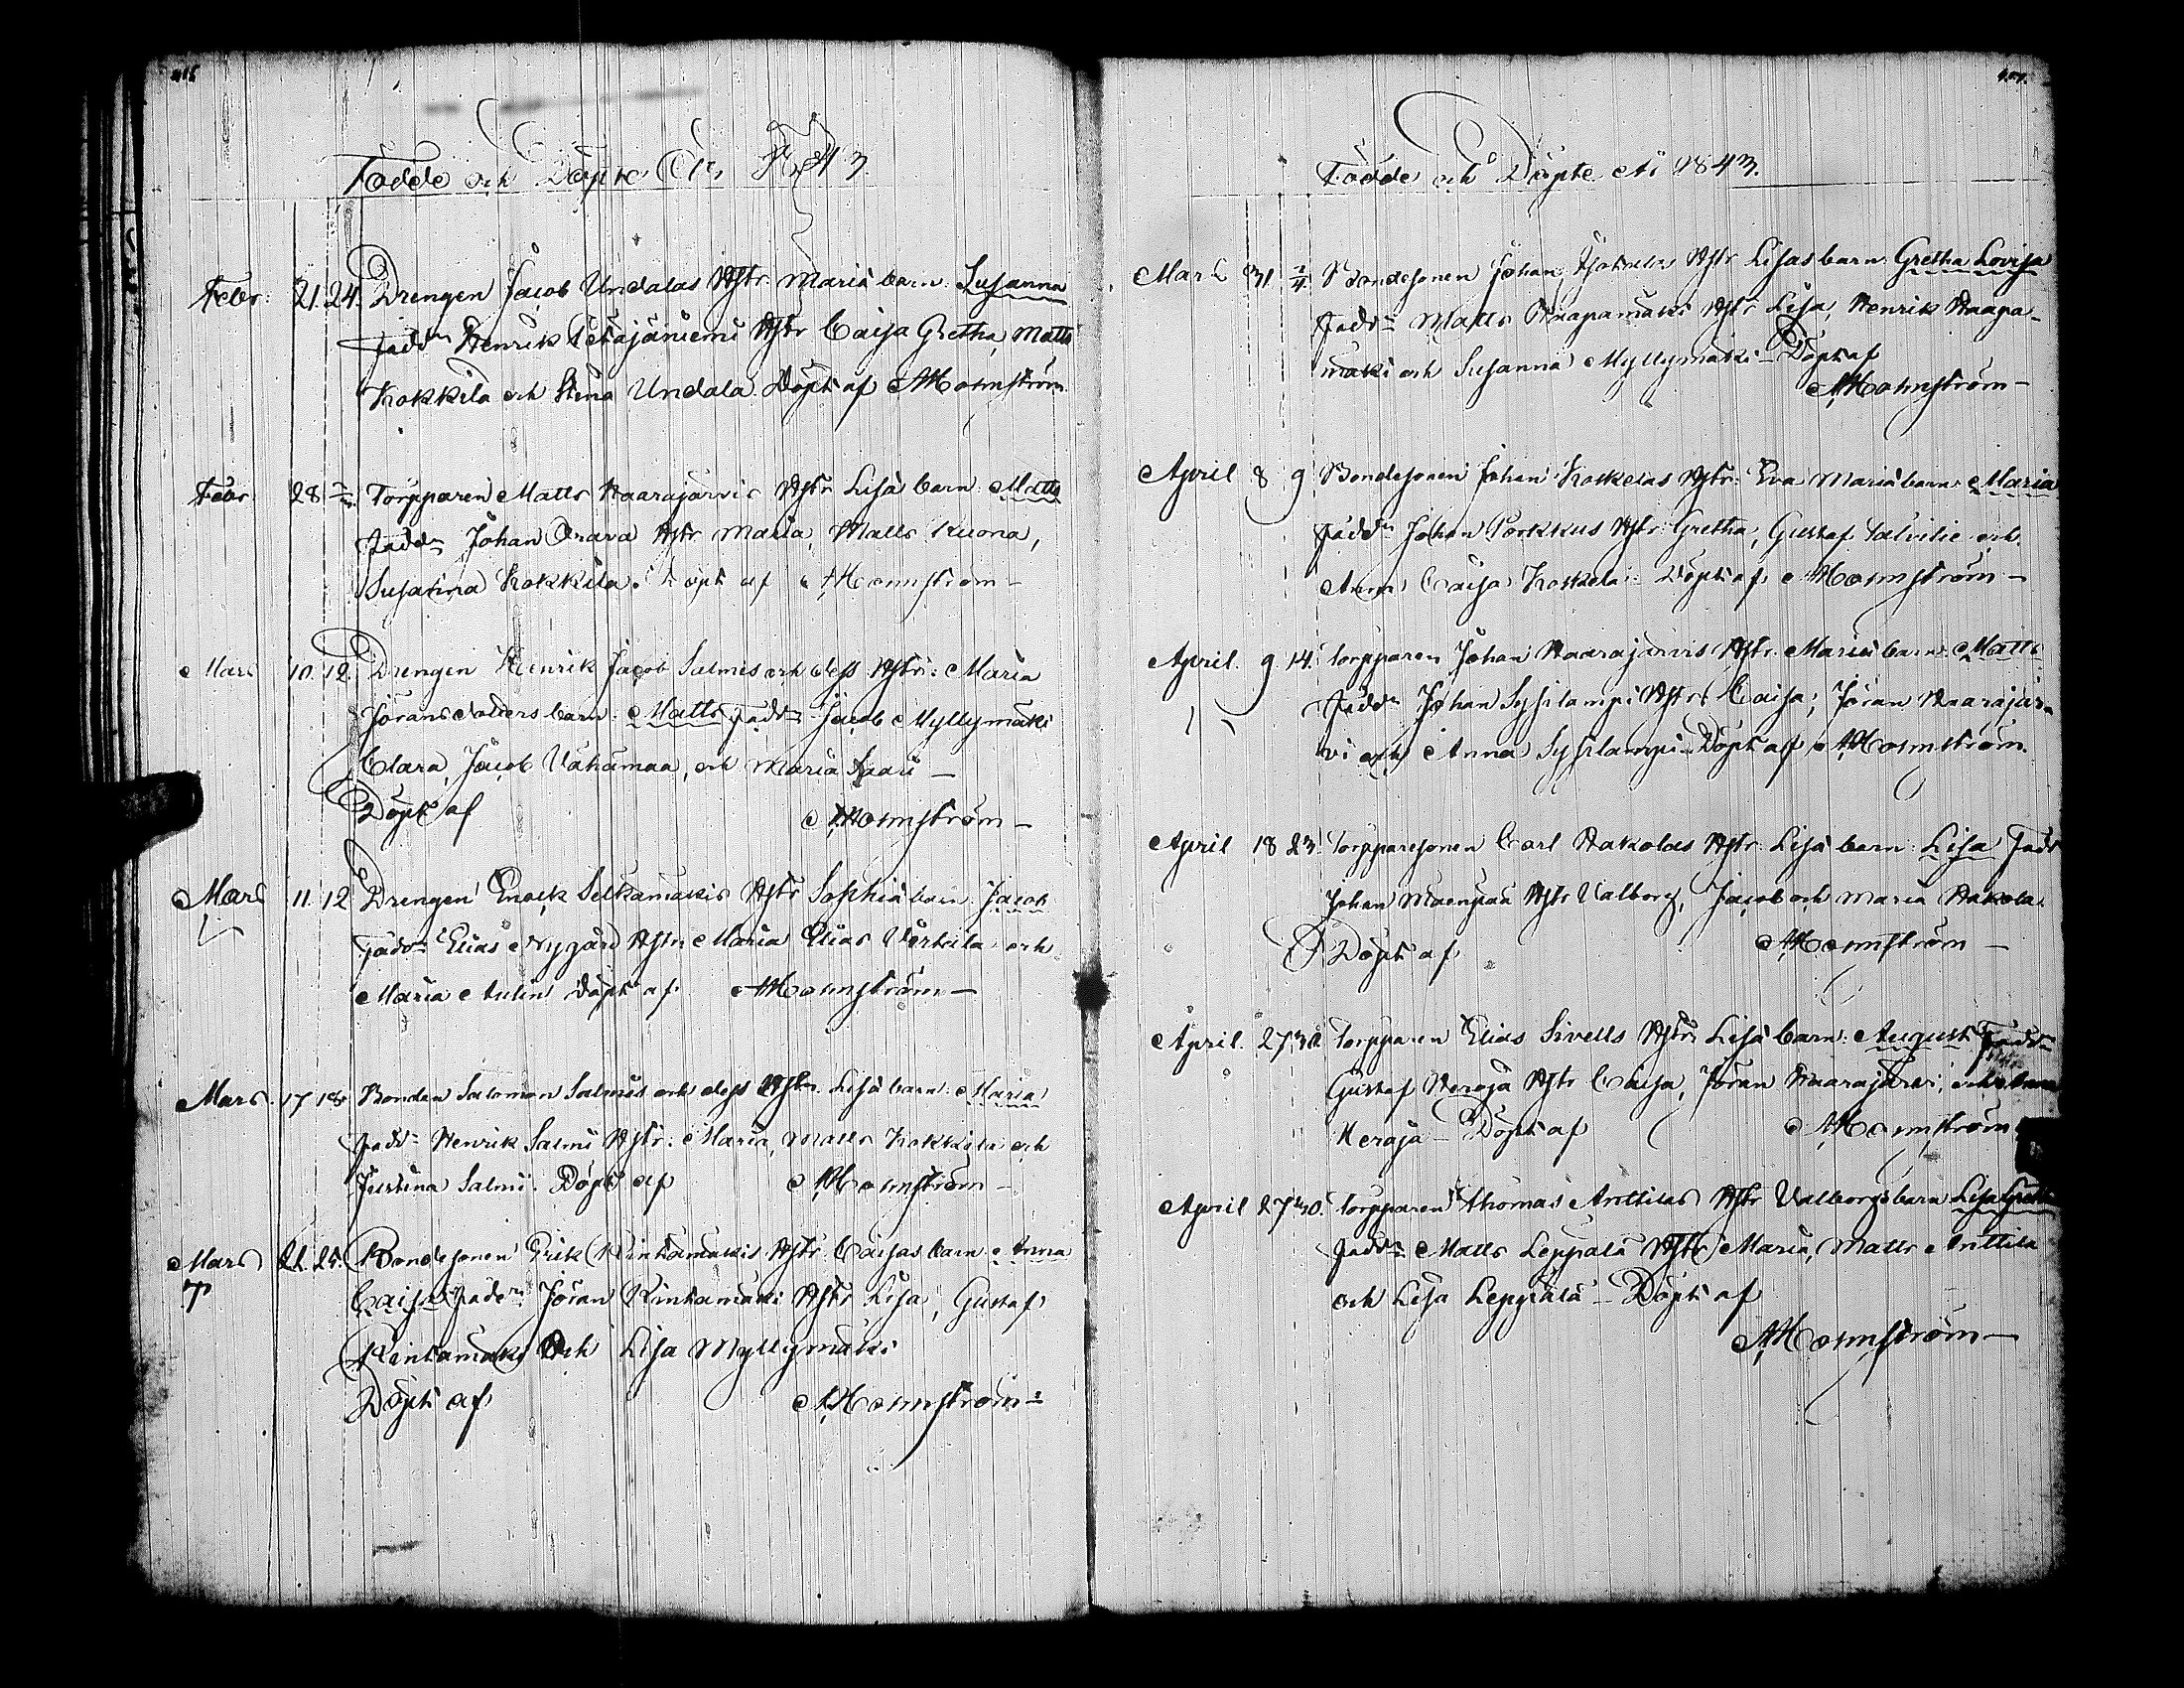 Födde och Döpte År 1843
Febr: 21. 24. Drengen Jacob Undalas Hstr. Mariä barn: Susanna
Fadd: Henrik Petäjäniemi Hstr Caisa Gretha, Matts
Kokkila och Stina Undala. Döpt af A Holmström
Febr 28 Torpparen Matts Haarajärvis Hstr Lisä barn: Matts
Fadd: Johan Orava Hstr Maria, Matts Kuona,
Susanna Kokkila. Döpt af A Holmström
Mars 10. 12. Drengen Henrik Jacob Salmis och dess Hstr: Maria
Jöransdotters barn: Matts Fadd: Jacob Myllymäki
Clara, Jacob Vähämaa, och Maria Saari
Döpt af A Holmström
Mars 11. 12 Drengen Enock Selkämäkis Hstr Sophiä barn: Jacob
Fadd: Elias Nygård Hstr Maria Elias och
Maria Aulin Döpt af A Holmström
Mars. 17 18. Bonden Salomon Salmis och dess Hstr. Lisä barn: Maria
Fadd: Henrik Salmi Hstr: Maria, Matts Kokkila och
Justina Salmi. Döpt af A Holmström
Mars 21. 25. Bondesonen Erik Rintamäkis Hstr Caisas barn Anna
Caisa Fadd: Jöran Rintamäki Hstr Lisa, Gustaf
Rintamäki och Lisa Myllymäki
Döpt af A Holmström
Födde och Döpte År 1843.
Mars 31 2/4 Bondesonen Johan Hstr Lisas barn: Gretha Lovisa
Fadd: Matts Haapamäki Hstr Lisa, Henrik Haapa-
mäki och Susanna Myllymäki Döpt af
A Holmström
April 8 9 Bondesonen Johan Koskelas Hstr: Eva Mariä barn: Maria
Fadd: Johan Porkkus Hstr: Gretha, Gustaf Talvitie och
Anna Caisa Koskela Döpt af A Holmström
April. 9. 14. Torpparen Johan Haarajärvis Hstr. Mariä barn: Matts
Fadd: Johan Sysilampi Hstr Caisa, Jöran Haarajär-
vi och Anna Sysilampi Döpt af A Holmström.
April 18 23. Torpparesonen Carl Hakolas Hstr: Lisä barn: Lisa Fadd
Johan Mäenpää Hstr Valborg, Jacob och Maria Hakola.
Döpt af A Holmström
April. 27 30 Torpparen Elias Sivells Hstr: Lisä barn: August Fadd:
Gustaf Heraja Hstr Caisa, Jöran Haarajärvi, och
Heraja Döpt af A Holmström
April 27 30. Torpparen Thomas Anttilas Hstr Valborgs barn Lisa Gretha
Fadd: Matts Leppälä Hstr Maria, Matts Anttila
och Lisa Leppälä Döpt af
A Holmström